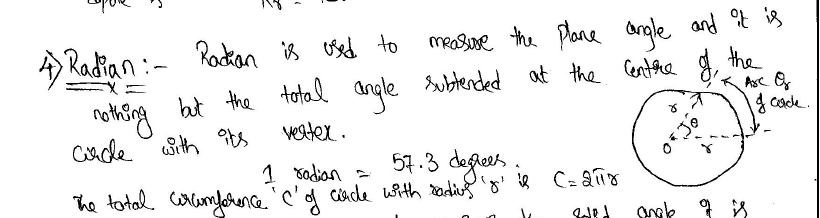 4) Radian :- Radian is used to measure the plane angle and it is
nothing but the total angle subtended at the centre of the
circle with its vertex.
Arc of
circle.
r
θ
O
r
1 radian = 57.3 degrees.
The total circumference 'C' of circle with radius 'r' is C = 2πr
angle θ is